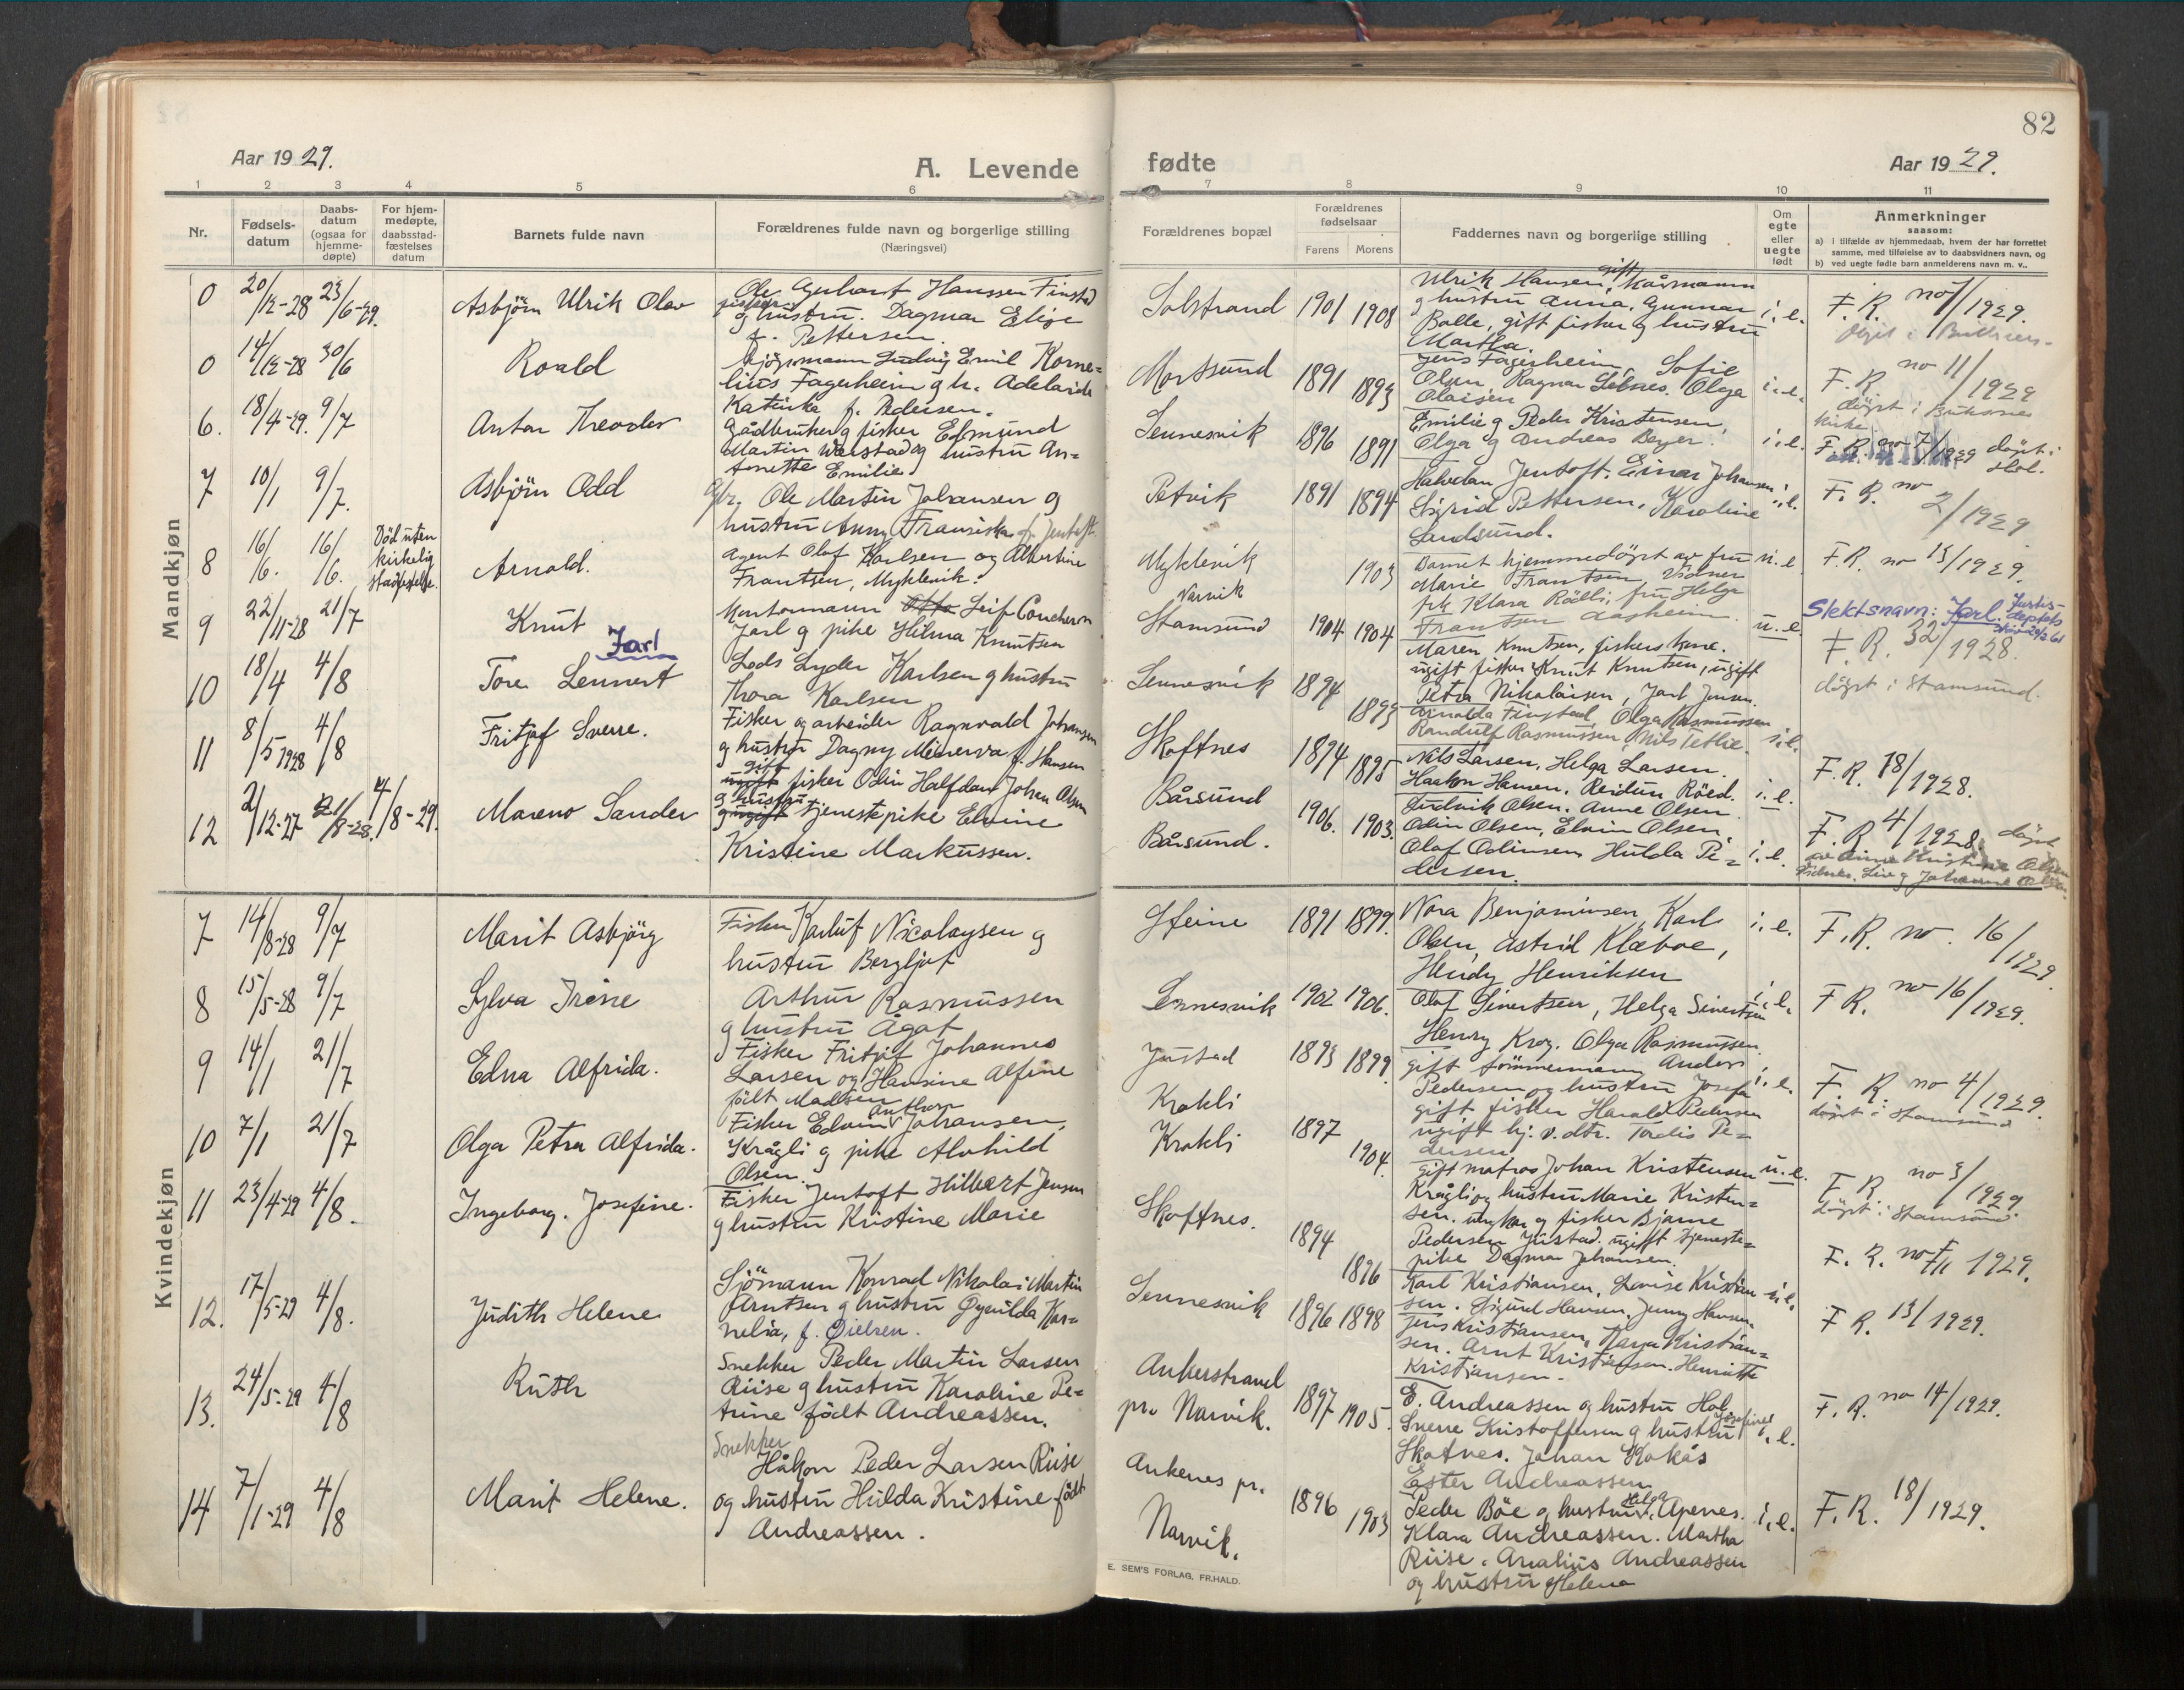 82
Aar 1929.
A. Levende
fødte
Aar 1929.
1 2 3 4 5 6 7 8 9 10 11
Nr.
Fødsels-
datum
Daabs-
datum
(ogsaa for
hjemme-
døpte)
For hjem-
medøpte,
daabsstad-
fæstelses
datum
Barnets fulde navn
Forældrenes fulde navn og borgerlige stilling
(Næringsvei)
Forældrenes bopæl
Forældrenes
fødselsaar
Farens Morens
Faddernes navn og borgerlige stilling
Om
egte
eller
uegte
født
Anmerkninger
saasom:
a) i tilfælde av hjemmedaab, hvem der har forrettet
samme, med tilføielse av to daabsvidners navn, og
b) ved uegte fødte barn anmelderens navn m. v..
Mandkjøn
0 20/12-28 23/6-29. Asbjörn Ulrik Olav
Ole Gerhart Hanssen Finstad
fisker
og hustru. Dagmar Elise
f. Pettersen.
Solstrand 1901 1908
Ulrik Hansen, gift
g hustru Anna, Gunnar
Balle, gift fisker g hustru
Martha.
i. e.
F. R. no 1/1929.
0 14/12-28 30/6 Roald
Ludvig Emil Korne-
lius Fagerheim g h. Adelaide
Katinka f. Pedersen.
Mortsund 1891 1893
Jens Fagerheim, Sofie
Olsen, Ragnar Olga
Olaisen
i. e.
F. R. no 11/1929
döpt i Buksnes
kirke
6. 18/4-29. 9/7 Anton Theodor
Gådbruker g fisker Edmund
Martin g hustru An-
tonette Emilie
Sennesvik 1896 1891
Emilie g Peder Kristensen,
Olga g Andreas Beyer.
i. e.
F. R. no 7/1929 döpt i
Hol.
7 10/1 9/7. Asbjörn Odd
Gbr. Ole Martin Johansen og
hustru Anny Franziska f. Jentoft
Petvik 1891 1894
Halvdan Jentoft. Einar Johansen
Sigrid Pettersen, Karoline
Sandsund.
i. e.
F. R. no 2/1929
8 16/6. 16/6.
Död uten
kirkelig
stadfestelse.
Arnold.
Agent Olaf Karlsen og Albertine
Frantsen, Myklevik.
Myklevik 1903
Barnet hjemmedöpt av fru
Marie Frantsen, Vidner
frk Klara Rödli, fru Helga
Frantsen Aasheim.
u. e.
F. R. no 13/1929.
9 22/11-28 21/7 Knut
Jarl
Kontormann Otto Leif Conchern
Jarl g pike Hilma Knutsen
Narvik
Stamsund 1904 1904
Maren Knutsen, fiskers kone.
ugift fisker Knut Knutsen, ugift
Petra Nikolaisen, Jarl Jensen.
u. e.
Slektsnavn: Jarl. Justis-
F. R. 32/1928.
döpt i Stamsund.
10 18/4 4/8 Tore Lennert
Lods Lyder Karlsen g hustru
Thora Karlsen
Sennesvik 1894 1893
Arnolda Finstad, Olga Rasmussen
Randulf Rasmussen, Nils Tetlie.
i. e.
11 8/5 1928 4/8 Fritjof Sverre.
Fisker og arbeider Ragnvald Johansen
g hustru Dagny Minerva f. Hansen
Skoftnes 1894 1895
Nils Larsen, Helga Larsen.
Haakon Hansen, Reidun Röed.
i. e.
F. R. 18/1928.
12 2/12-27 21/8-28. 4/8-29. Mareno Sander
gift
ugift fisker Odin Halfdan Johan Olsen
g hustru
g ugift tjenestepike Elvine
Kristine Markussen.
Bårsund
Bårsund. 1906. 1903.
Ludvik Olsen. Anne Olsen.
Odin Olsen, Elvin Olsen,
Olaf Odinsen Hulda Pe-
dersen.
i. e.
F. R 4/1928. döpt
Kvindekjøn
7 14/8-28 9/7 Marit Asbjörg
Fisker Karluf Nicolaysen g
hustru Bergljot
Steine 1891 1899.
Nora Benjaminsen, Karl
Olsen, Astrid Klæboe,
Hendy Henriksen
i. e.
F. R. no. 16/1929.
8 15/5-28 9/7 Sylva Irene
Arthur Rasmussen
g hustru Ågot
Sennesvik 1902 1906.
Olaf Sivertsen, Helga Sivertsen
Henry Krog. Olga Rasmussen.
i. e.
F R. no 16/1929.
9 14/1 21/7 Edna Alfrida.
Fisker Fritjof Johannes
Larsen og Hansine Alfine
födt Madsen
Justad 1893 1899.
gift tömmermann Anders
Pedersen og hustru Josefa
gift fisker Harald Pedersen
ugift hj. v. dtr. Tordis Pe-
dersen
i. e.
F. R. no 4/1929.
döpt i Stamsund
10 7/1 21/7 Olga Petra Alfrida.
Fisker Edvin Anthon Johansen,
Krågli g pike Alvhild
Olsen.
Krokli
Krokli 1897 1904.
gift matros Johan Kristensen
Krågli og hustru Marie Kristen-
sen. g fisker Bjarne
Pedersen Justad. ugift tjeneste-
pike Dagmar Johansen.
u. e.
F R. no 3/1929.
döpt i Stamsund.
11 23/4-29 4/8. Ingeborg. Josefine.
Fisker Jentoft Hilbert Jensen
g hustru Kristine Marie
Skoftnes. 1894 1896
Karl Kristiansen, Lovise Kristian-
sen. Sigurd Hansen, Jenny Hansen.
i. e.
F. R. no 1929.
12. 17/5-29 4/8. Judith Helene
Sjömann Konrad Nikolai Martin
Arntsen g hustru Gynilda Kor-
nelia, f. Öielsen.
Sennesvik 1896 1898
Jens Kristiansen, Kaya Kristian-
sen. Arnt Kristiansen. Henriette
Kristiansen.
F R. 13/1929.
13. 24/5-29 4/8 Ruth
Snekker Peder Martin Larsen
Riise g hustru Karoline Pe-
trine födt Andreassen.
Ankerstrand
pr. Narvik. 1897 1905.
E. Andreassen og hustru Hol
Sverre Kristoffersen g hustru Josefine
Skotnes. Johan Kokås
Ester Andreassen
i. e.
F. R. no 14/1929.
14 7/1-29 4/8 Marit Helene.
Snekker
Håkon Peder Larsen Riise
og hustru Hulda Kristine födt
Andreassen.
Ankenes pr.
Narvik. 1896 1903
Peder Böe g hustru Helga, Apenes.
Klara Andreassen. Martha
Riise. Analius Andreassen
og hustru Helena
i. e.
F. R. 18/1929.
E. SEM'S FORLAG, FR.HALD.